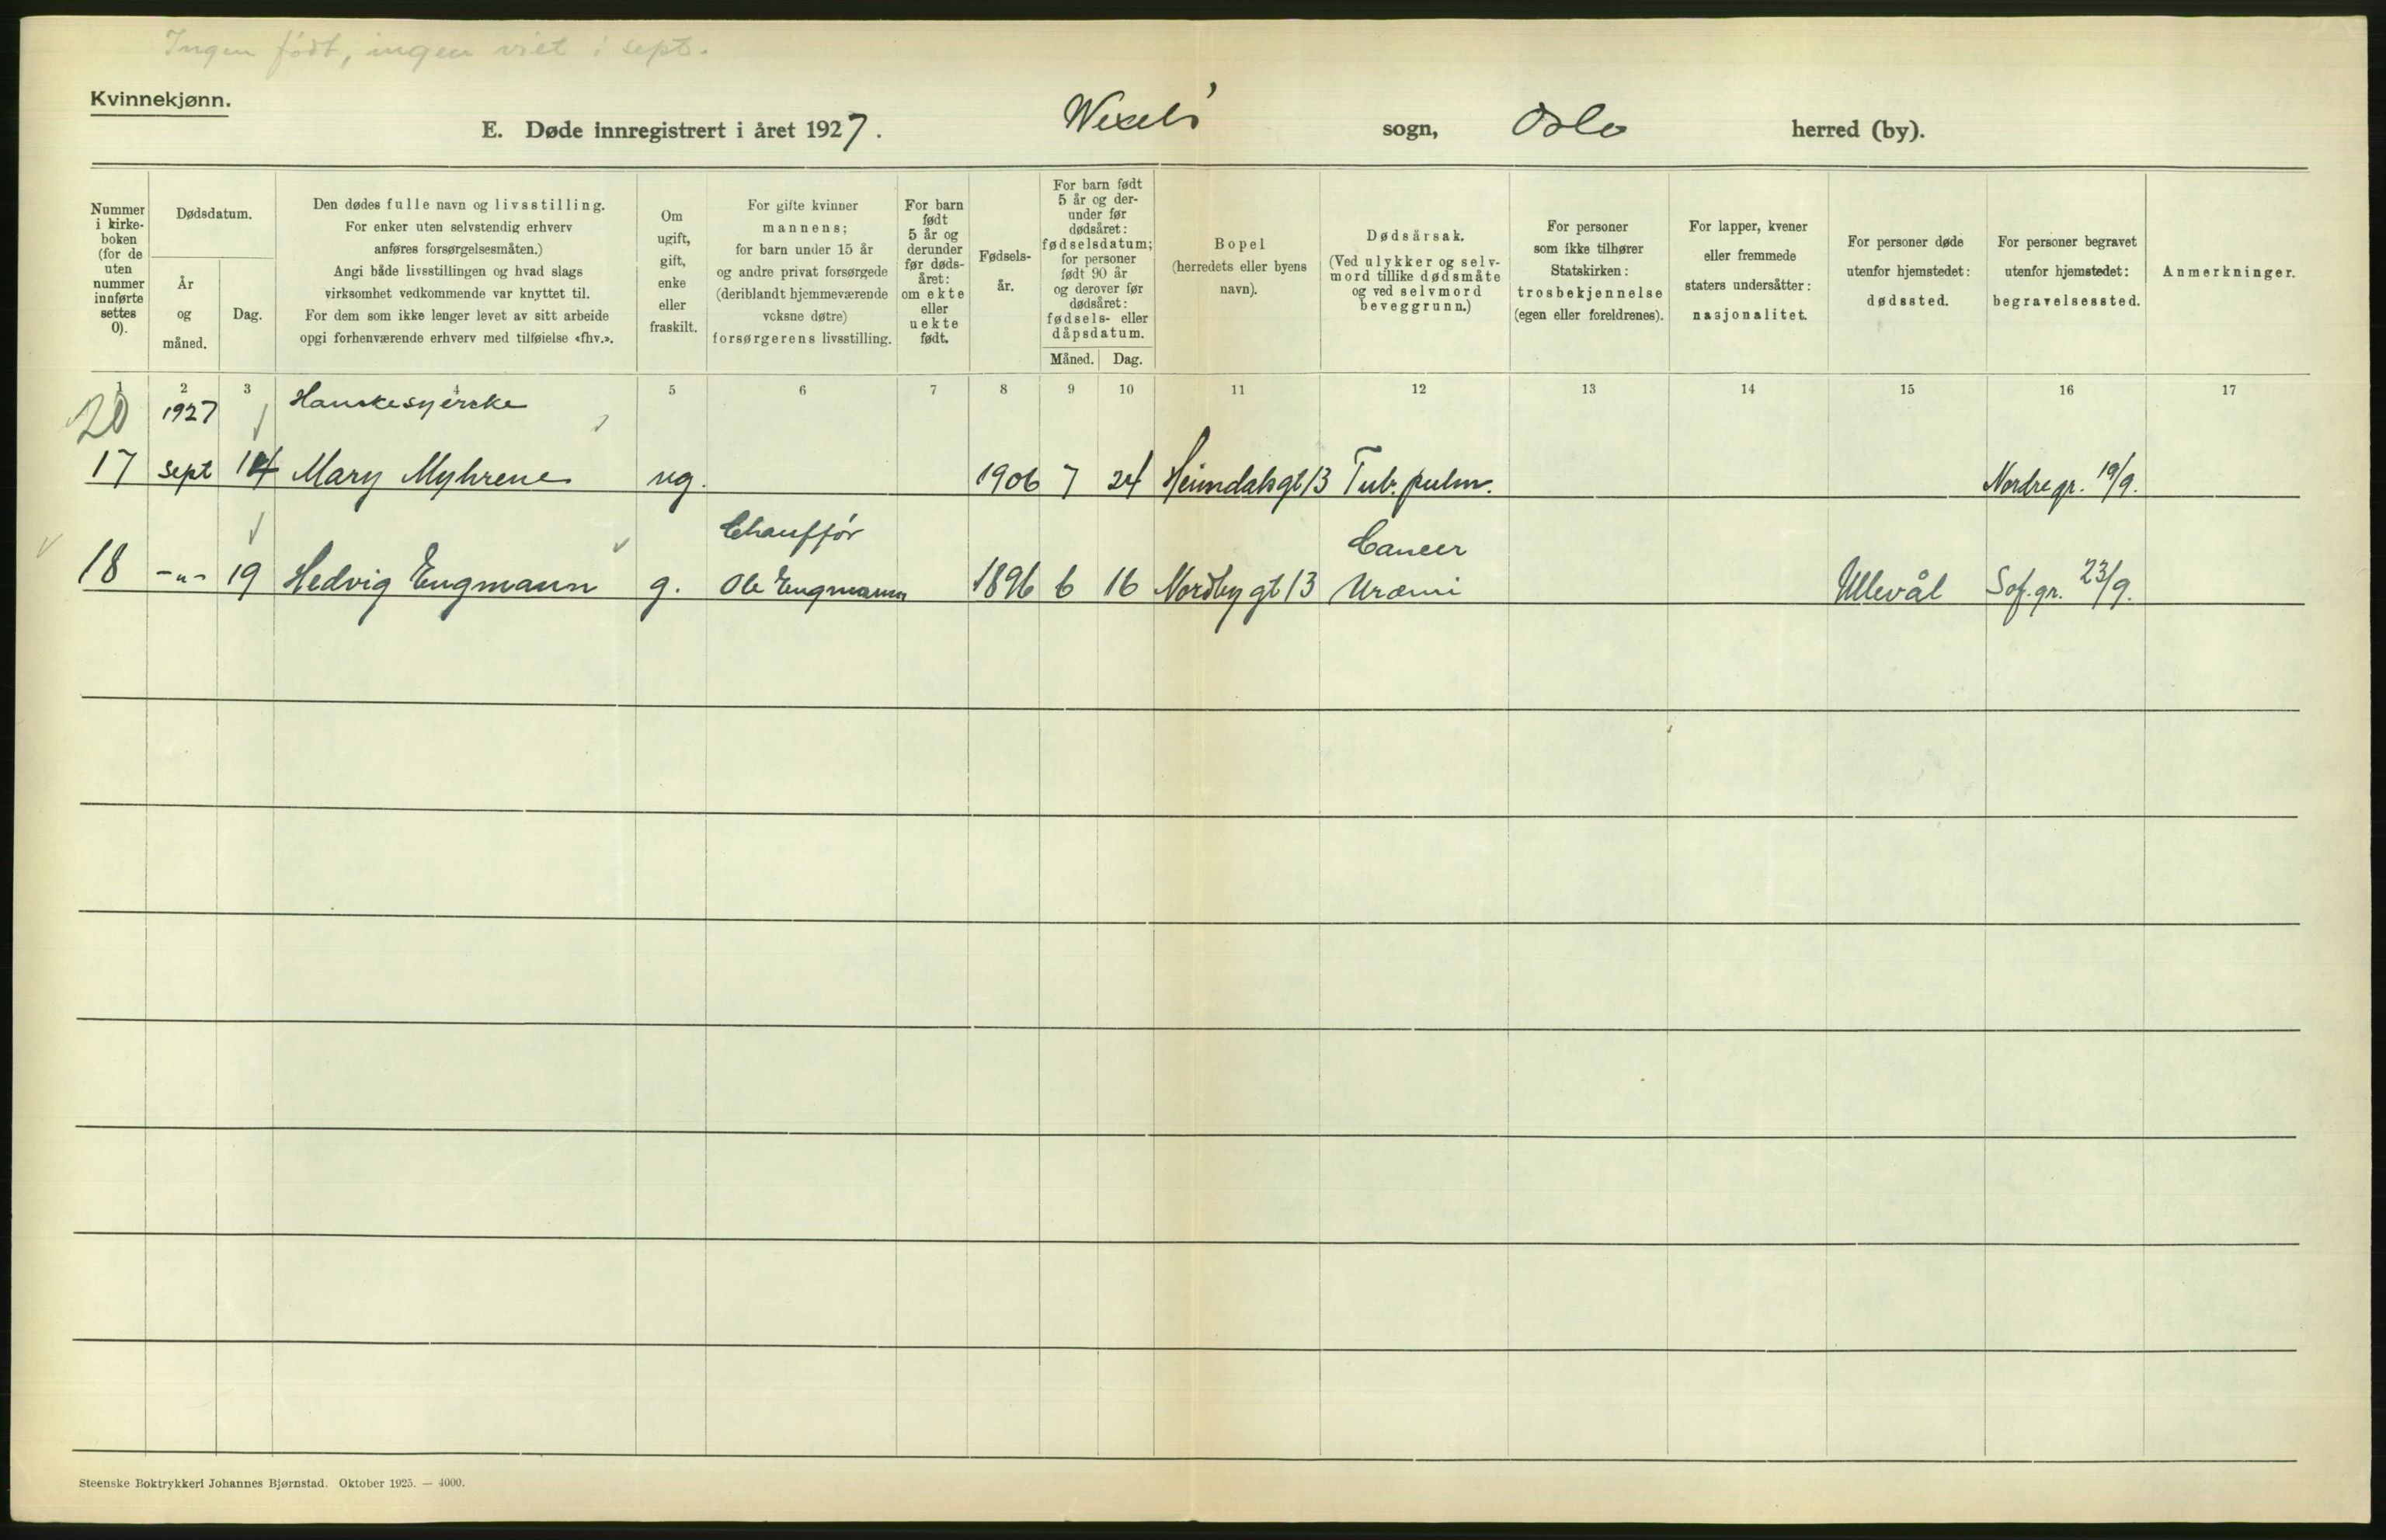 Ingen født, ingen viet i sept.
Kvinnekjønn.
E. Døde innregistrert i året 1927. Wexels' sogn, Oslo herred (by).
Nummer i kirke-boken (for de uten nummer innførte settes 0).
Dødsdatum.
År og måned.
Dag.
Den dødes fulle navn og livsstilling.
For enker uten selvstendig erhverv
anføres forsørgelsesmåten.)
Angi både livsstillingen og hvad slags
virksomhet vedkommende var knyttet til.
For dem som ikke lenger levet av sitt arbeide
opgi forhenværende erhverv med tilføielse «fhv.».
Om ugift, gift, enke eller fraskilt.
For gifte kvinner
mannens;
for barn under 15 år
og andre privat forsørgede
(deriblandt hjemmeværende
voksne døtre)
forsørgerens livsstilling.
For barn født 5 år og derunder før døds-året: om ekte eller uekte født.
Fødsels-år.
For barn født
5 år og der-
under før
dødsåret:
fødselsdatum;
for personer
født 90 år
og derover før
dødsåret:
fødsels- eller
dåpsdatum.
Måned. Dag.
Bopel
(herredets eller byens
navn).
Dødsårsak.
(Ved ulykker og selv-
mord tillike dødsmåte
og ved selvmord
beveggrunn.)
For personer
som ikke tilhører
Statskirken:
trosbekjennelse
(egen eller foreldrenes).
For lapper, kvener
eller fremmede
staters undersåtter:
nasjonalitet.
For personer døde
utenfor hjemstedet:
dødssted.
For personer begravet
utenfor hjemstedet:
begravelsessted.
Anmerkninger.
1 2 3 4 5 6 7 8 9 10 11 12 13 14 15 16 17
20 1927 Hanskesyerske
17 sept 14 Mary Myhrene ug. 1906 7 24 Heimdalsgt 13 Tub. pulm. Nordre gr. 19/9.
Chauffør Cancer
18 -"- 19 Hedvig Engmann g. Ole Engmann 1896 6 16 Nordbygt 13 Uræmi Ullevål Sof. gr. 23/9.
Steenske Boktrykkeri Johannes Bjørnstad. Oktober 1925. — 4000.